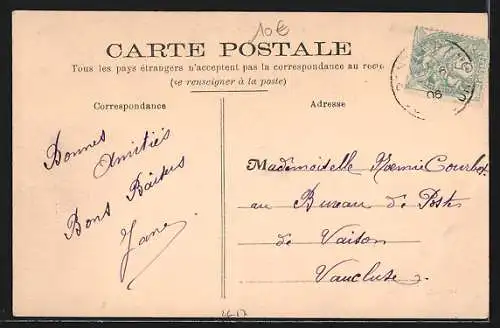 10€
CARTE POSTALE
Tous les pays étrangers n'acceptent pas la correspondance au recto
(se renseigner à la poste)
Correspondance
Adresse
Bonnes
Amitiés
Bons Baisers
Jane
Mademoiselle Noemie Courbet
au Bureau de Poste
de Vaison
Vaucluse